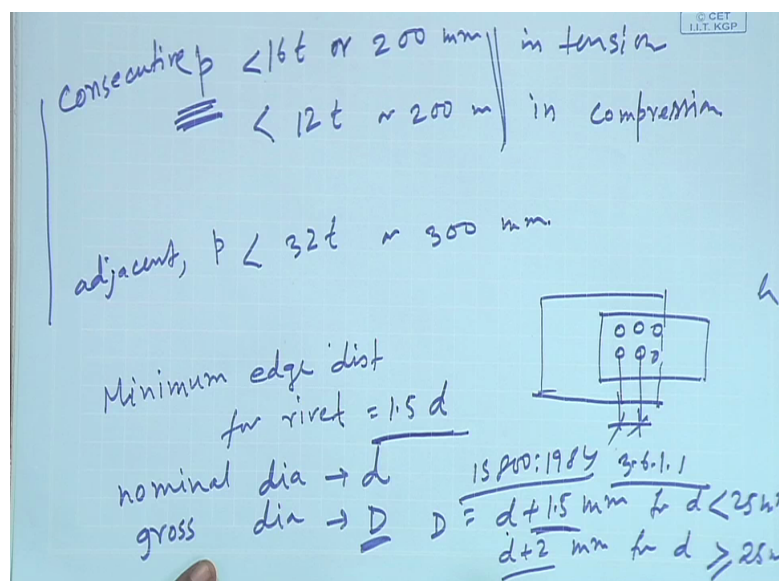 © CET
I.I.T. KGP
Consecutive p < 16t or 200 mm in tension
< 12t or 200 m in compression
adjacent, p < 32t or 300 mm.
Minimum edge dist
for rivet = 1.5 d
nominal dia → d
IS 800:1984 3.6.1.1
gross dia → D D = d+1.5 mm for d < 25m
d+2 mm for d ≥ 25m